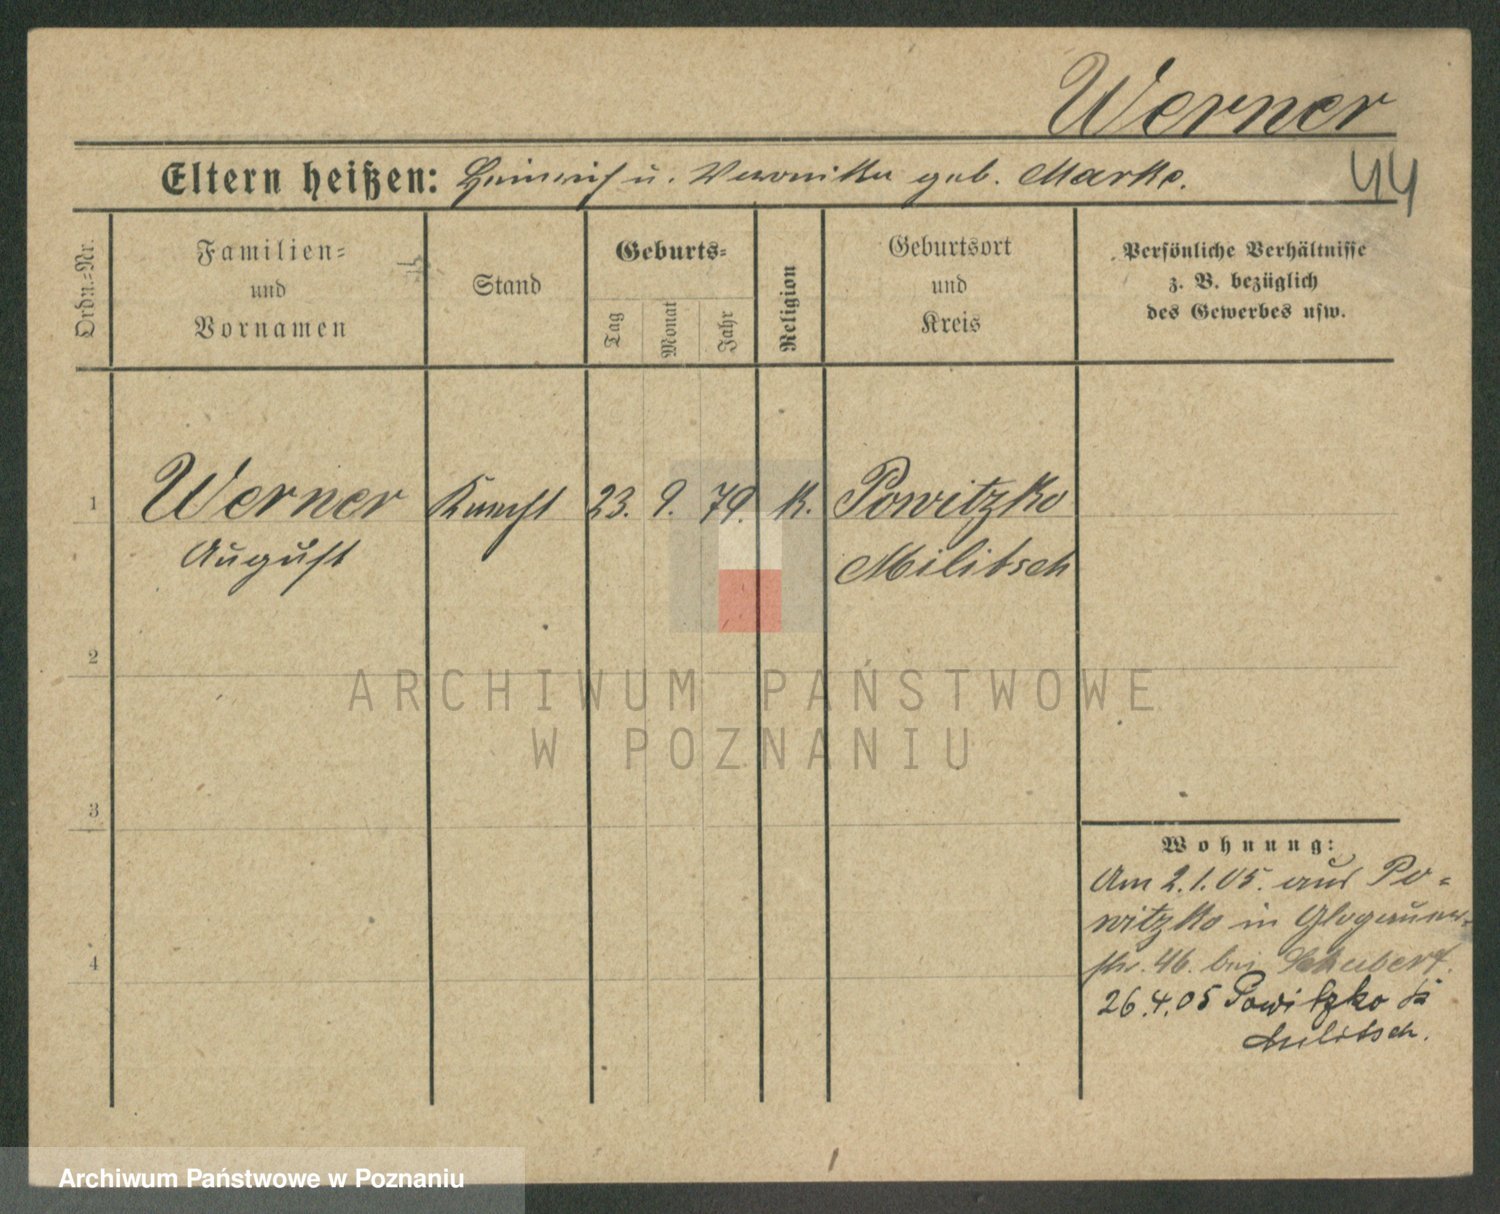 Werner
Eltern heißen: Heinrich u. Veronika geb. Marke.
44
Ordn.-Nr.
Familien-
und
Vornamen
Stand
Geburts-
Tag
Monat
Jahr
Religion
Geburtsort
und
Kreis
Persönliche Verhältnisse
z. B. bezüglich
des Gewerbes usw.
1 Werner Knecht 23. 9. 79. K. Powitzko
August Militsch
2
3
4
Wohnung:
Am 2.1.05. aus Po-
witzko in Glogauer-
str. 46. bei Schubert.
26.4.05 Powitzko
Militsch.
ARCHIWUM PAŃSTWOWE
W POZNANIU
Archiwum Państwowe w Poznaniu